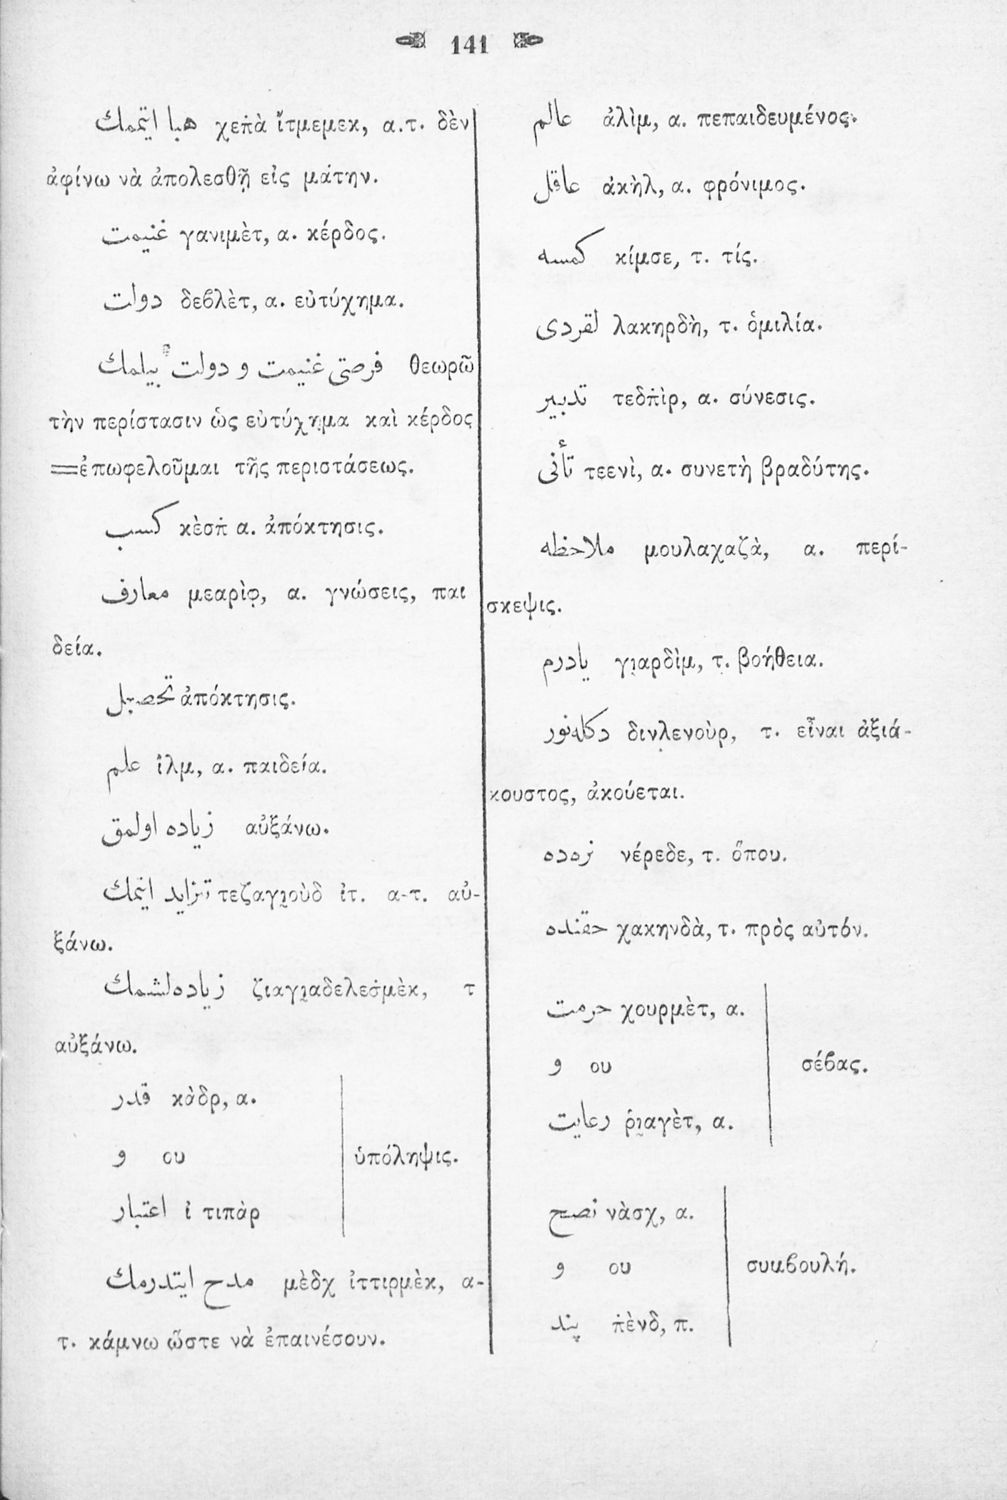 141
هبا ايتممك χεπὰ ἴτμεμεκ, α.τ. δὲν
ἀφίνω νὰ ἀπολεσθῇ εἰς μάτην.
غنيمت γανιμὲτ, α. κέρδος.
دولت δεβλὲτ, α. εὐτύχημα.
فرصتى غنيمت و دولت بيلمك θεωρῶ
τὴν περίστασιν ὡς εὐτύχημα καὶ κέρδος
=ἐπωφελοῦμαι τῆς περιστάσεως.
كسب κὲσπ α. ἀπόκτησις.
معارف μεαρὶφ, α. γνώσεις, παι
δεία.
تحصيل ἀπόκτησις.
علم ἲλμ, α. παιδεία.
زياده اولمق αὐξάνω.
تزايد ايتمك τεζαγιοὺδ ἰτ. α-τ. αὐ-
ξάνω.
زياده لشمك ζιαγιαδελεσμὲκ, τ
αὐξάνω.
قدر κὰδρ, α.
و ου
ὑπόληψις.
اعتبار ἰ τιπὰρ
مدح ايتدرمك μὲδχ ἰττιρμὲκ, α-
τ. κάμνω ὥστε νὰ ἐπαινέσουν.
عالم ἀλὶμ, α. πεπαιδευμένος.
عاقل ἀκὴλ, α. φρόνιμος.
كمسه κίμσε, τ. τίς.
لقردى λακηρδὴ, τ. ὁμιλία.
تدبير τεδπὶρ, α. σύνεσις.
تأنى τεενὶ, α. συνετὴ βραδύτης.
ملاحظه μουλαχαζὰ, α. περί-
σκεψις.
يادرم γιαρδὶμ, τ. βοήθεια.
دكله نور δινλενοὺρ, τ. εἶναι ἀξιά-
κουστος, ἀκούεται.
نرهده νέρεδε, τ. ὅπου.
حقنده χακηνδὰ, τ. πρὸς αὐτόν.
حرمت χουρμὲτ, α.
و ου
σέβας.
رعايت ῥιαγὲτ, α.
نصح νὰσχ, α.
و ου
συμβουλή.
پند πὲνδ, π.